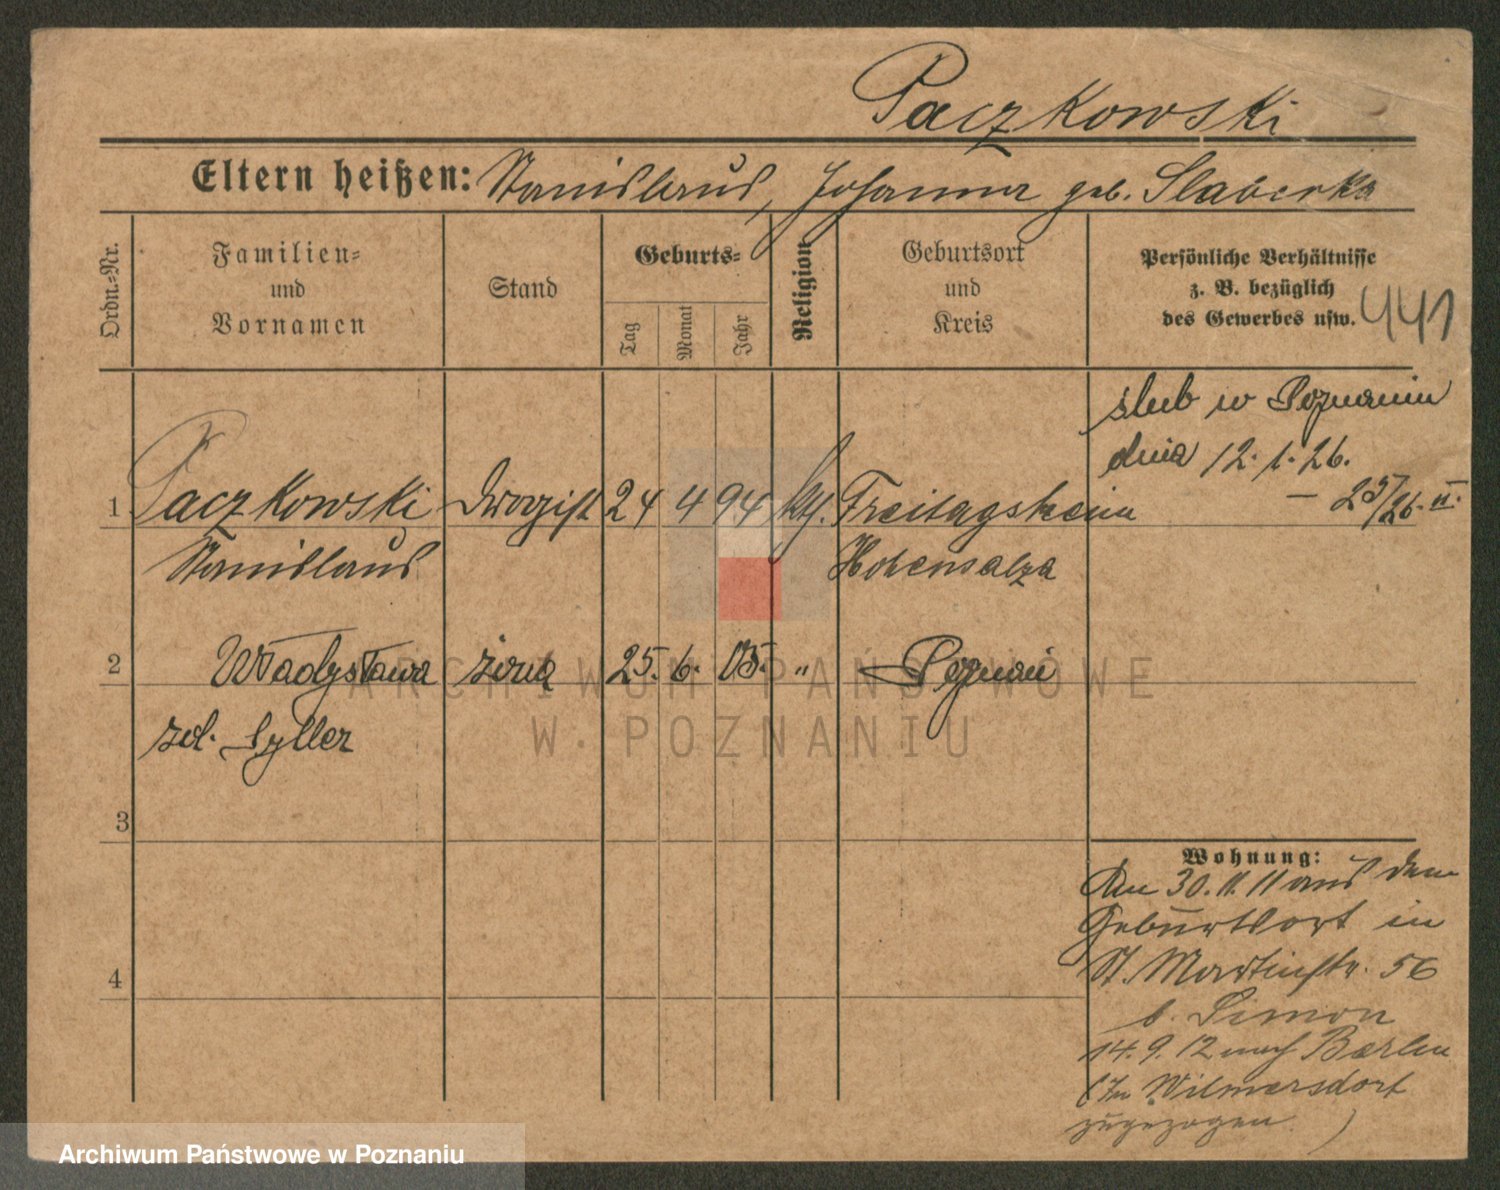 Paczkowski
Eltern heißen: Stanislaus, Johanna geb. Slaberka
Ordn.-Nr.
Familien-
und
Vornamen
Stand
Geburts-
Tag
Monat
Jahr
Religion
Geburtsort
und
Kreis
Persönliche Verhältnisse
z. B. bezüglich
des Gewerbes usw. 441
ślub w Poznaniu
dnia 12. 1. 26.
– 25/26. II.
1 Paczkowski Drogist 24 4 94 kth. Freitagsheim
Stanislaus Hohensalza
2 Władysława żona 25. 6. 05. " Poznań
zd. Syller
3
4
Wohnung:
Am 30.11.11 aus dem
Geburtsort in
St. Martinstr. 56
b. Simon
14. 9. 12 nach Berlin
(In Wilmersdorf
zugezogen.)
ARCHIWUM PAŃSTWOWE
W POZNANIU
Archiwum Państwowe w Poznaniu